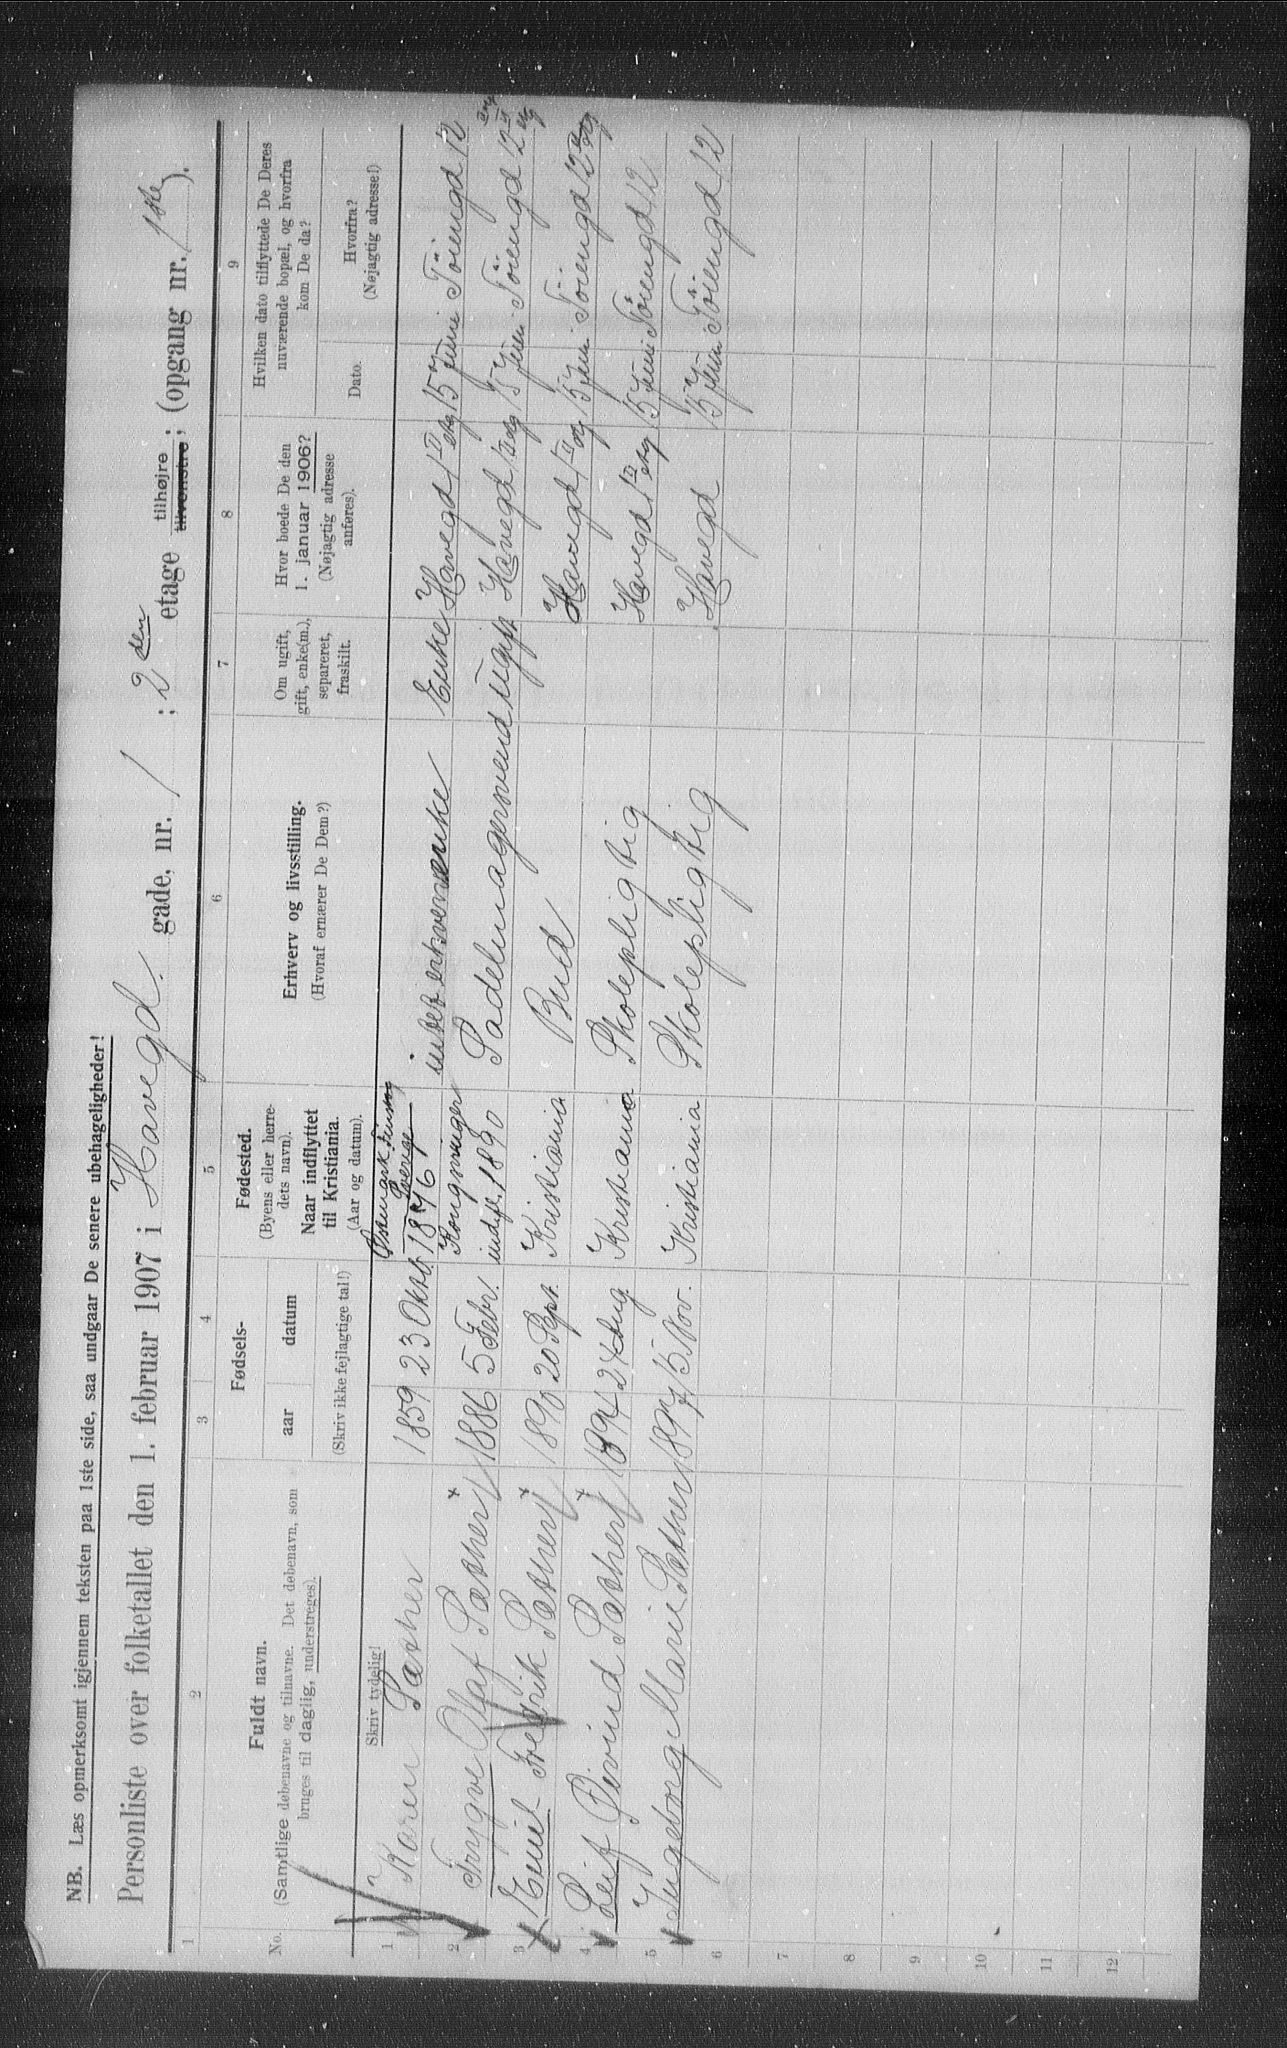 NB. Læs opmerksomt igjennem teksten paa 1ste side, saa undgaar De senere ubehageligheder!
Personliste over folketallet den 1. februar 1907 i Havegd. gade, nr. 1 ; 2den etage tilhøjre tilvenstre ; (opgang nr. 1ste ).
1 2 3 4 5 6 7 8 9
No.
Fuldt navn.
(Samtlige døbenavne og tilnavne. Det døbenavn, som
bruges til daglig, understreges).
Skriv tydelig!
Fødsels-
aar datum
(Skriv ikke fejlagtige tal!)
Fødested.
(Byens eller herre-
dets navn).
Naar indflyttet
til Kristiania.
(Aar og datum).
Erhverv og livsstilling.
(Hvoraf ernærer De Dem?)
Om ugift,
gift, enke(m.),
separeret,
fraskilt.
Hvor boede De den
1. januar 1906?
(Nøjagtig adresse
anføres).
Hvilken dato tilflyttede De Deres
nuværende bopæl, og hvorfra
kom De da?
Dato.
Hvorfra?
(Nøjagtig adresse!)
1 Karen Sæther 1859 23 Oktb. Sverige 1876 enke Enke Havegd 1 II etg 15 Juni Töiengd 12
2 Trygve Olaf Sæther 1886 5 Febr. Kongsvinger indfl. 1890 Sadelmagersvend ugift Havegd 1 etg 15 Juni Töiengd 12 II etg
3 Emil Fredrik Sæther 1890 20 Sept. Kristiania Bud Havegd 1 II etg 15 Juni Töiengd 12 etg
4 Leif Öivind Sæther 1894 24 Aug Kristiania Skolepligtig Havegd 1 II etg 15 Juni Töiengd 12
5 Ingeborg Marie Sæther 1897 15 Nov. Kristiania Skolepligtig Havegd 15 Juni Töiengd 12
6
7
8
9
10
11
12